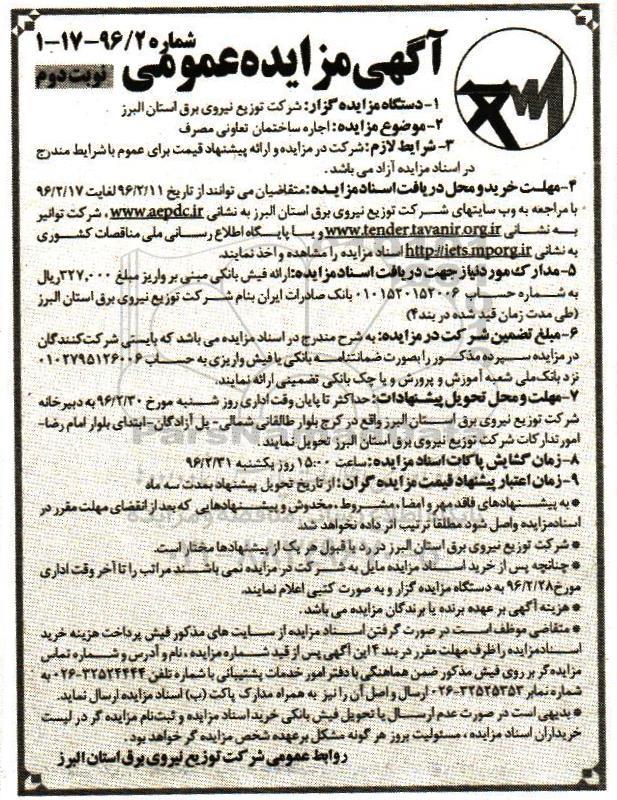 آگهی مزایده عمومی شماره ۹۶/۲-۱۷-۱
نوبت دوم
۱-دستگاه مزایده گزار: شرکت توزیع نیروی برق استان البرز
۲-موضوع مزایده: اجاره ساختمان تعاونی مصرف
۳- شرایط لازم: شرکت در مزایده و ارائه پیشنهاد قیمت برای عموم با شرایط مندرج
در اسناد مزایده آزاد می باشد.
۴-مهلت خرید و محل دریافت اسناد مزایده: متقاضیان می توانند از تاریخ ۹۶/۲/۱۱ لغایت ۹۶/۲/۱۷
با مراجعه به وب سایتهای شرکت توزیع نیروی برق استان البرز به نشانی www.aepdc.ir ، شرکت توانیر
به نشانی www.tender.tavanir.org.ir و یا پایگاه اطلاع رسانی ملی مناقصات کشوری
به نشانی http://iets.mporg.ir اسناد مزایده را مشاهده و اخذ نمایند.
۵-مدارک مورد نیاز جهت دریافت اسناد مزایده: ارائه فیش بانکی مبنی بر واریز مبلغ ۳۲۷,۰۰۰ ریال
به شماره حساب ۰۱۰۱۵۲۰۱۵۲۰۰۶ بانک صادرات ایران بنام شرکت توزیع نیروی برق استان البرز
(طی مدت زمان قید شده در بند۴)
۶-مبلغ تضمین شرکت در مزایده: به شرح مندرج در اسناد مزایده می باشد که بایستی شرکت کنندگان
در مزایده سپرده مذکور را بصورت ضمانتنامه بانکی یا فیش واریزی به حساب ۰۱۰۲۷۹۵۱۲۶۰۰۶
نزد بانک ملی شعبه آموزش و پرورش و یا چک بانکی تضمینی ارائه نمایند.
۷-مهلت و محل تحویل پیشنهادات: حداکثر تا پایان وقت اداری روز شنبه مورخ ۹۶/۲/۳۰ به دبیرخانه
شرکت توزیع نیروی برق استان البرز واقع در کرج بلوار طالقانی شمالی- پل آزادگان-ابتدای بلوار امام رضا-
امور تدارکات شرکت توزیع نیروی برق استان البرز تحویل نمایند.
۸-زمان گشایش پاکات اسناد مزایده: ساعت ۱۵:۰۰ روز یکشنبه ۹۶/۲/۳۱
۹-زمان اعتبار پیشنهاد قیمت مزایده گران: از تاریخ تحویل پیشنهاد بمدت سه ماه
* به پیشنهادهای فاقد مهر و امضا ، مشروط ، مخدوش و پیشنهادهایی که بعد از انقضای مهلت مقرر در
اسناد مزایده واصل شود مطلقا ترتیب اثر داده نخواهد شد.
* شرکت توزیع نیروی برق استان البرز در رد یا قبول هر یک از پیشنهادها مختار است.
* چنانچه پس از خرید اسناد مزایده مایل به شرکت در مزایده نمی باشند مراتب را تا آخر وقت اداری
مورخ ۹۶/۲/۲۸ به دستگاه مزایده گزار و به صورت کتبی اعلام نمایند.
* هزینه آگهی بر عهده برنده یا برندگان مزایده می باشد.
* متقاضی موظف است در صورت گرفتن اسناد مزایده از سایت های مذکور فیش پرداخت هزینه خرید
اسناد مزایده را ظرف مهلت مقرر در بند ۴ این آگهی پس از قید شماره مزایده ، نام و آدرس و شماره تماس
مزایده گر بر روی فیش مذکور ضمن هماهنگی با دفتر امور خدمات پشتیبانی با شماره تلفن ۳۲۵۲۴۴۴۴-۰۲۶ به
شماره نمابر ۳۲۵۲۵۳۵۳-۰۲۶ ارسال و اصل آن را نیز به همراه مدارک پاکت (ب) اسناد مزایده ارسال نماید.
* بدیهی است در صورت عدم ارسال یا تحویل فیش بانکی خرید اسناد مزایده و ثبت نام مزایده گر در لیست
خریداران اسناد مزایده ، مسئولیت بروز هر گونه مشکل بر عهده شخص مزایده گر خواهد بود.
روابط عمومی شرکت توزیع نیروی برق استان البرز